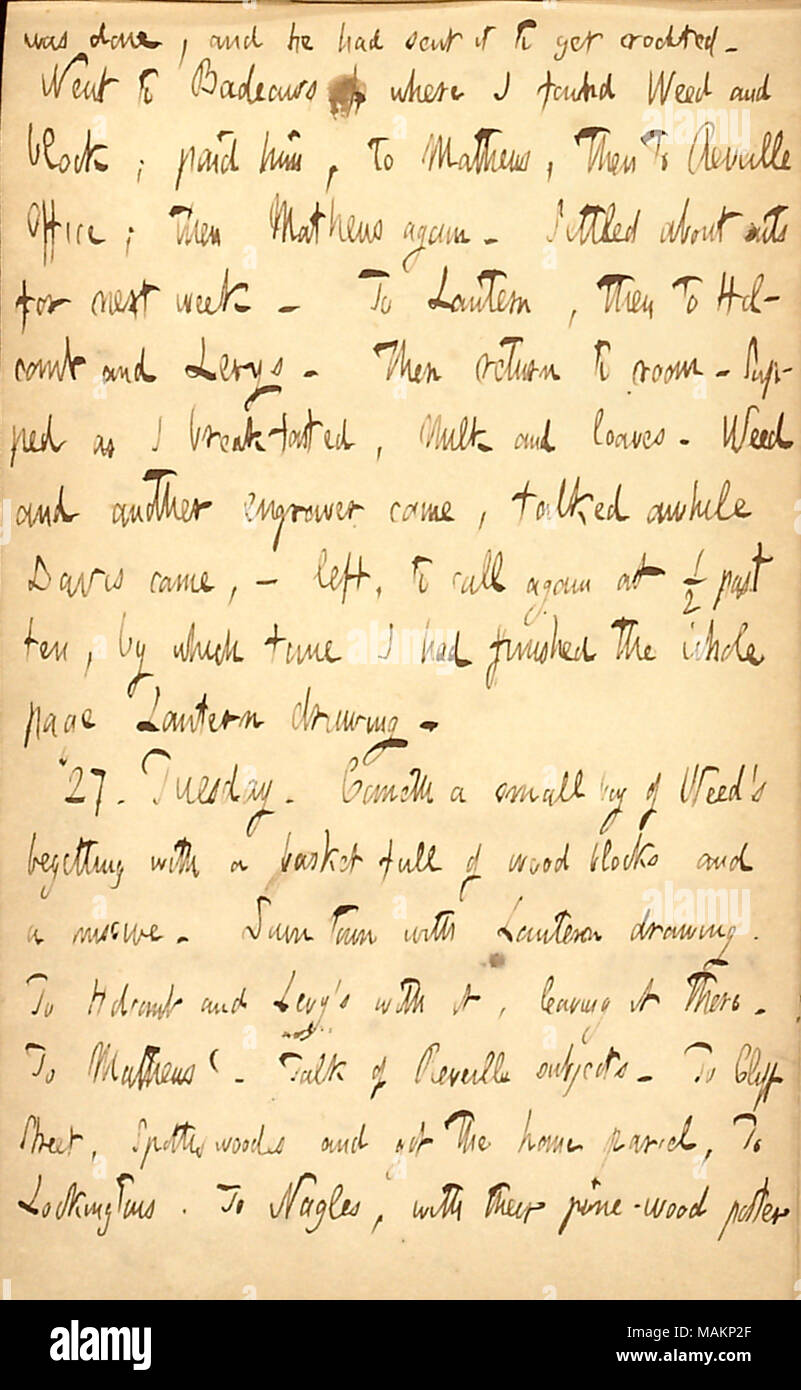 was done, and he had sent it to get crockted.
Went to Badeaus where I found Weed and
block; paid him, to Mathews, then to Reveille
Office; then Mathews again. Settled about cuts
for next week - To Lantern, then to Hol-
comb and Levys - Then return to room - Sup-
ped as I breakfasted, Milk and loaves. Weed
and another engraver came, talked awhile
Davis came, - left, to call again at ½ past
ten, by which time I had finished the whole
page Lantern drawing.
27. Tuesday. Cometh a small boy of Weed's
begetting with a basket full of wood blocks and
a missive. Down town with Lantern drawing.
To Holcomb and Levy's with it, leaving it there.
To Mathews'. Talk of Reveille subjects. To Cliff
Street, Spottiswoodes and got the home parcel, To
Lockingtons. To Nagles, with their pine-wood poster
alamy
Image ID: MAKP2F
www.alamy.com